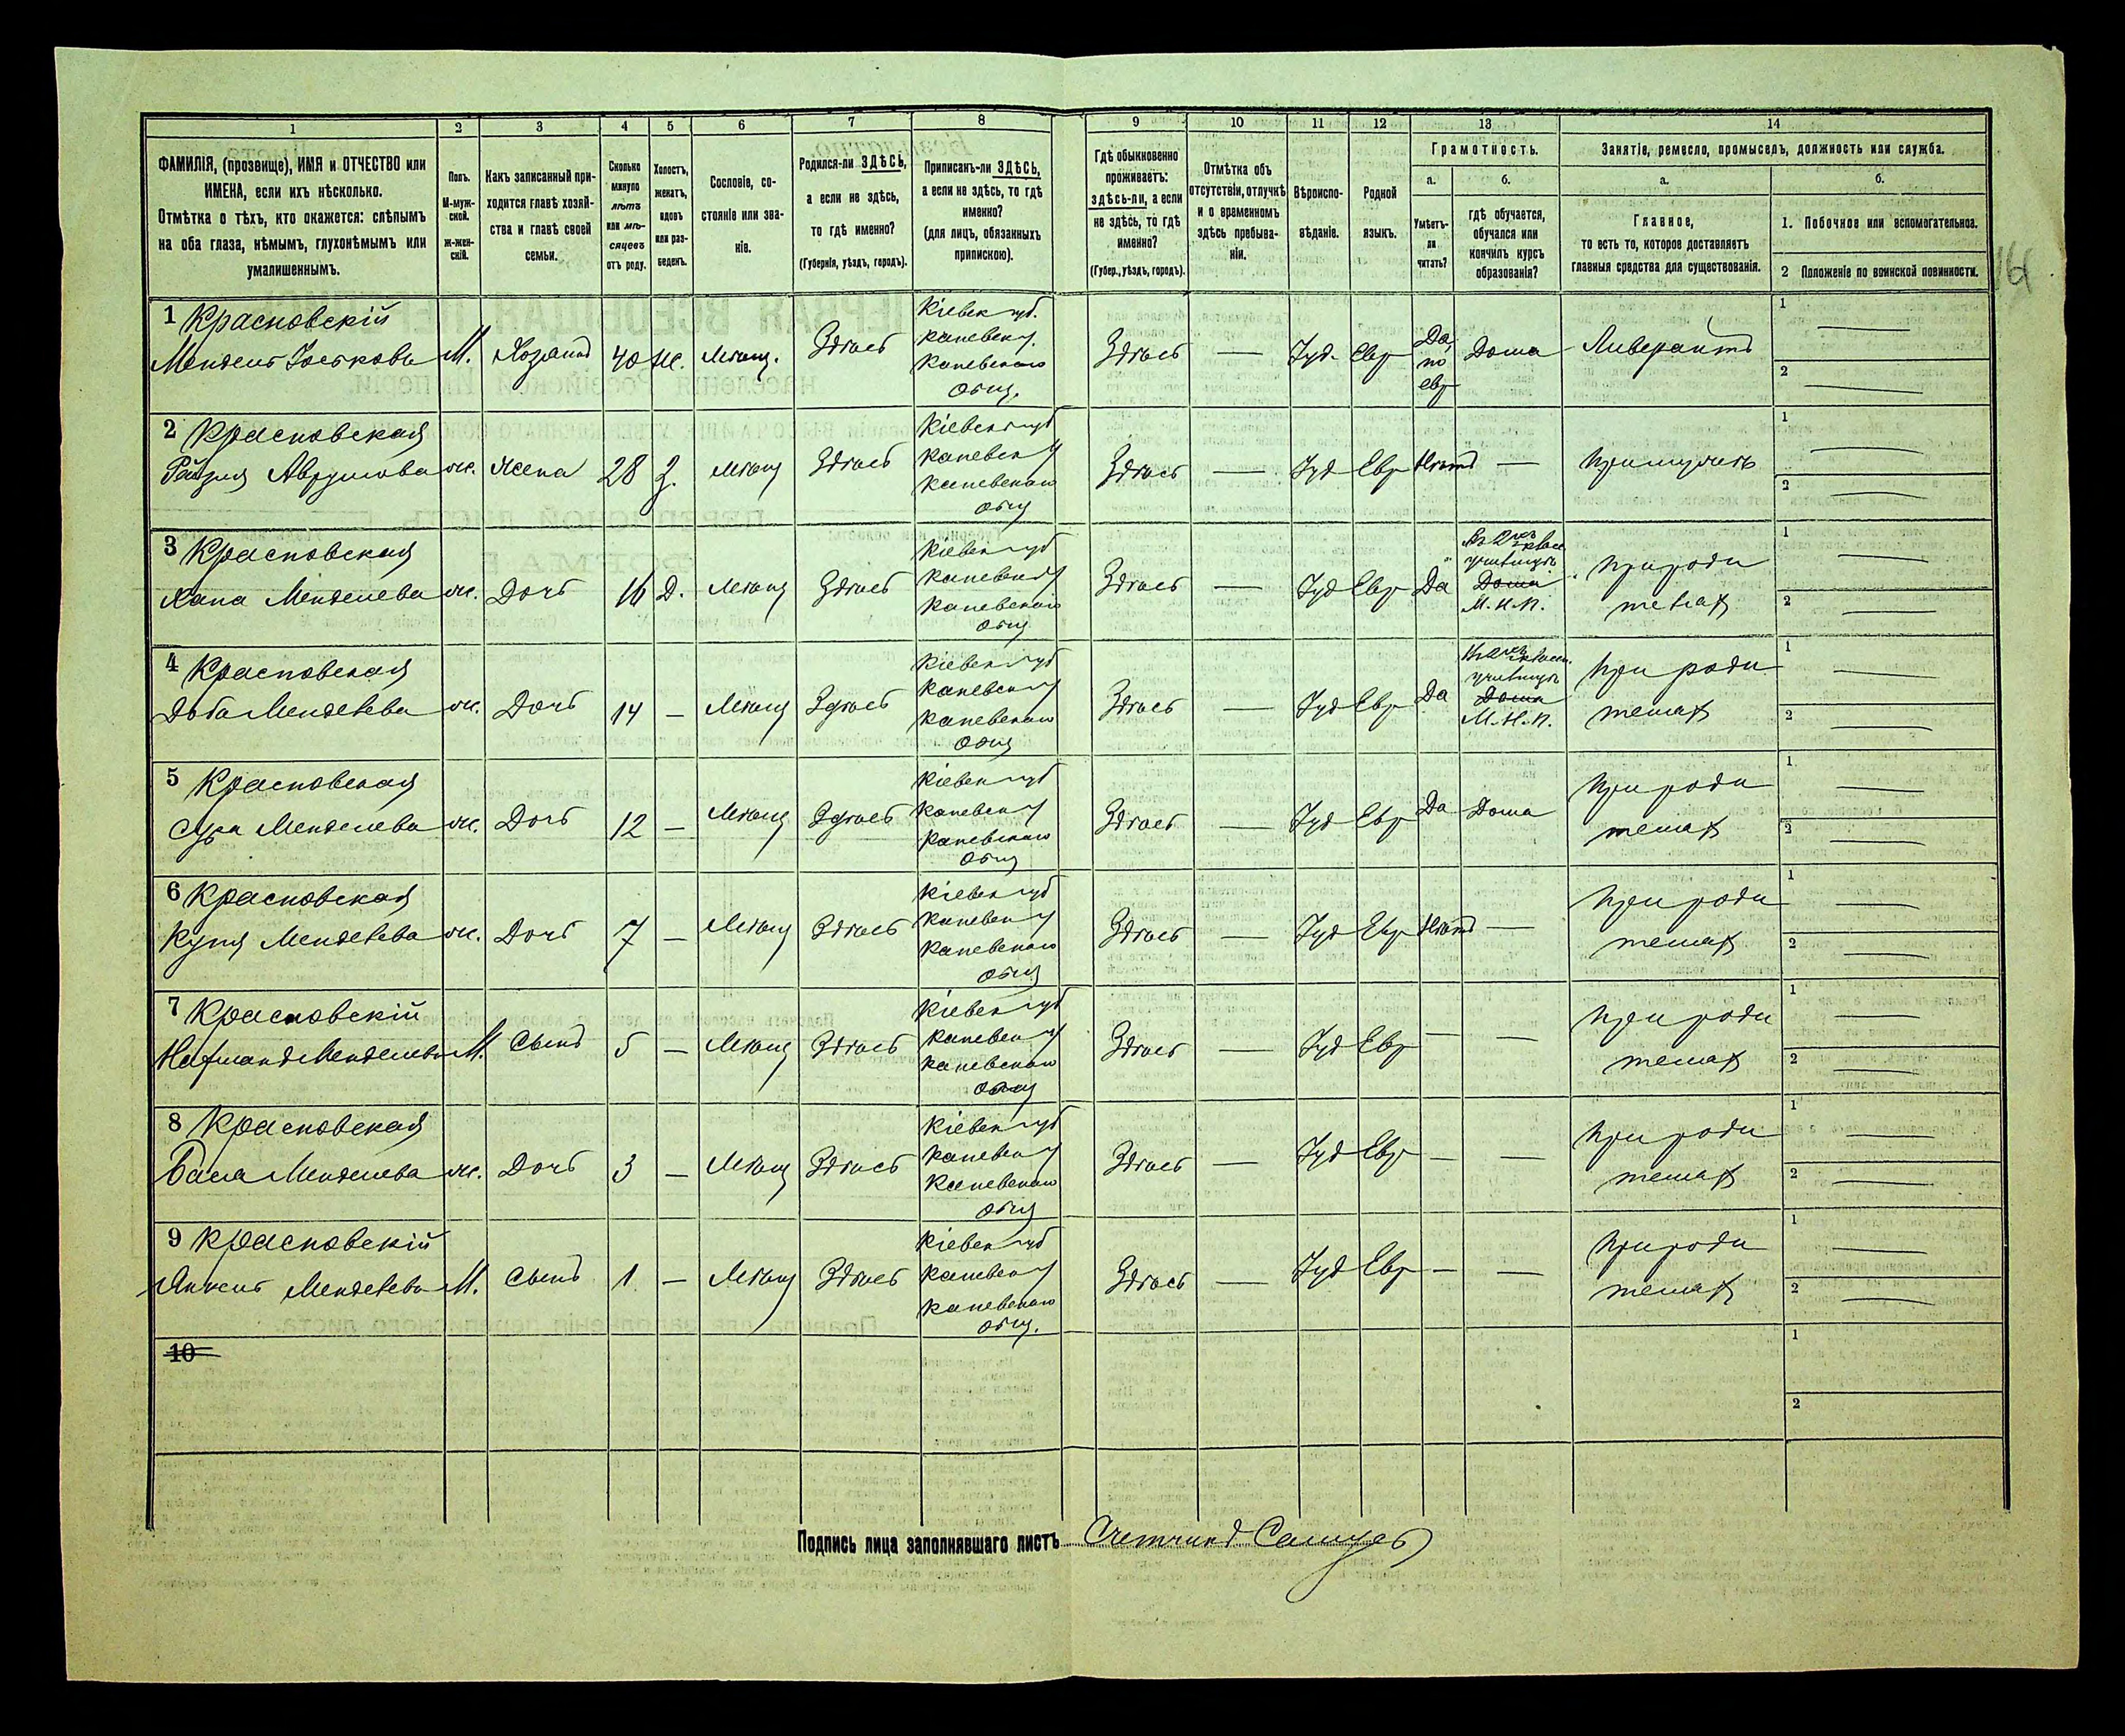 1 2 3 4 5 6 7 8 9 10 11 12 13 14
ФАМИЛІЯ, (прозвище), ИМЯ и ОТЧЕСТВО или
ИМЕНА, если ихъ нѣсколько.
Отмѣтка о тѣхъ, кто окажется: слѣпымъ
на оба глаза, нѣмымъ, глухонѣмымъ или
умалишеннымъ.
Полъ.
М-муж-
ской.
ж-жен-
скій.
Какъ записанный при-
ходится главѣ хозяй-
ства и главѣ своей
семьи.
Сколько
минуло
лѣтъ
или мѣ-
сяцевъ
отъ роду.
Холостъ,
женатъ,
вдовъ
или раз-
веденъ.
Сословіе, со-
стояніе или зва-
ніе.
Родился-ли ЗДѢСЬ,
а если не здѣсь,
то гдѣ именно?
(Губернія, уѣздъ, городъ).
Приписанъ-ли ЗДѢСЬ,
а если не здѣсь, то гдѣ
именно?
(для лицъ, обязанныхъ
припискою).
Гдѣ обыкновенно
проживаетъ:
здѣсь-ли, а если
не здѣсь, то гдѣ
именно?
(Губер., уѣздъ, городъ).
Отмѣтка объ
отсутствіи, отлучкѣ
и о временномъ
здѣсь пребыва-
ніи.
Вѣроиспо-
вѣданіе.
Родной
языкъ.
Грамотность.
а.
Умѣетъ-
ли
читать?
б.
гдѣ обучается,
обучался или
кончилъ курсъ
образованія?
Занятіе, ремесло, промыселъ, должность или служба.
а.
Главное,
то есть то, которое доставляетъ
главныя средства для существованія.
б.
1. Побочное или вспомогательное.
2 Положеніе по воинской повинности.
1 Красновскій
Мендель Іоськовъ М. Хозяинъ 40 ж. Мѣщ. Здѣсь
Кіевск губ.
Каневск у.
Каневскаго
Общ.
Здѣсь — Іуд. Евр
Да,
по
евр
Дома Ливерантъ
1 —
2 —
2 Красновская
Рейзя Аврумова ж. Жена 28 З. мѣщ Здѣсь
Кіевск губ
Каневск у
Каневскаго
Общ
Здѣсь — Іуд Евр Нѣтъ — при мужѣ
1 —
2 —
3 Красновская
Хана Менделева ж. Дочь 16 Д. мѣщ Здѣсь
Кіевск губ
Каневск у
Каневскаго
Общ
Здѣсь — Іуд Евр Да
училищѣ
Дома
М. Н. П.
При роди
теляхъ
1 —
2 —
4 Красновская
Доба Менделева ж. Дочь 14 — Мѣщ Здѣсь
Кіевск губ
Каневск у
Каневскаго
Общ
Здѣсь — Іуд Евр Да
училищѣ
Дома
М. Н. П.
При роди
теляхъ
1 —
2 —
5 Красновская
Сура Менделева ж. Дочь 12 — Мѣщ Здѣсь
Кіевск губ
Каневск у
Каневскаго
Общ
Здѣсь — Іуд Евр Да Дома
При роди
теляхъ
1 —
2 —
6 Красновская
Менделева ж. Дочь 7 — Мѣщ Здѣсь
Кіевск губ
Каневск у
Каневскаго
Общ
Здѣсь — Іуд Евр Нѣтъ —
При роди
теляхъ
1 —
2 —
7 Красновскій
Менделевъ М. Сынъ 5 — Мѣщ Здѣсь
Кіевск губ
Каневск у
Каневскаго
Общ
Здѣсь — Іуд Евр — —
При роди
теляхъ
1 —
2 —
8 Красновская
Бася Менделева ж. Дочь 3 — Мѣщ Здѣсь
Кіевск губ
Каневск у
Каневскаго
Общ
Здѣсь — Іуд Евр — —
При роди
теляхъ
1 —
2 —
9 Красновскій
Янкель Менделевъ М. Сынъ 1 — Мѣщ Здѣсь
Кіевск губ
Каневск у
Каневскаго
Общ.
Здѣсь — Іуд Евр — —
При роди
теляхъ
1 —
2 —
10
1
2
Подпись лица заполнявшаго листъ Счетчикъ